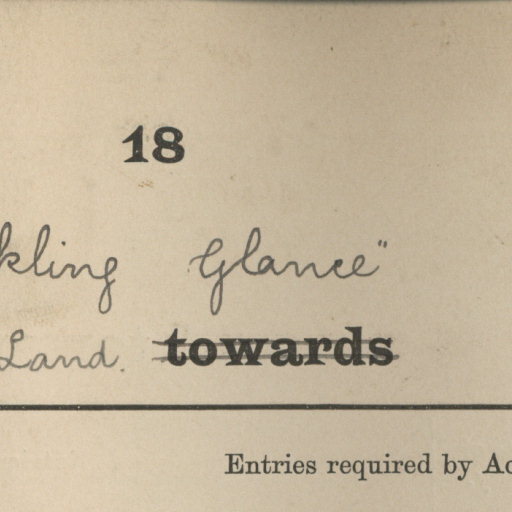 18
kling Glance"
Land. towards
Entries required by Ac